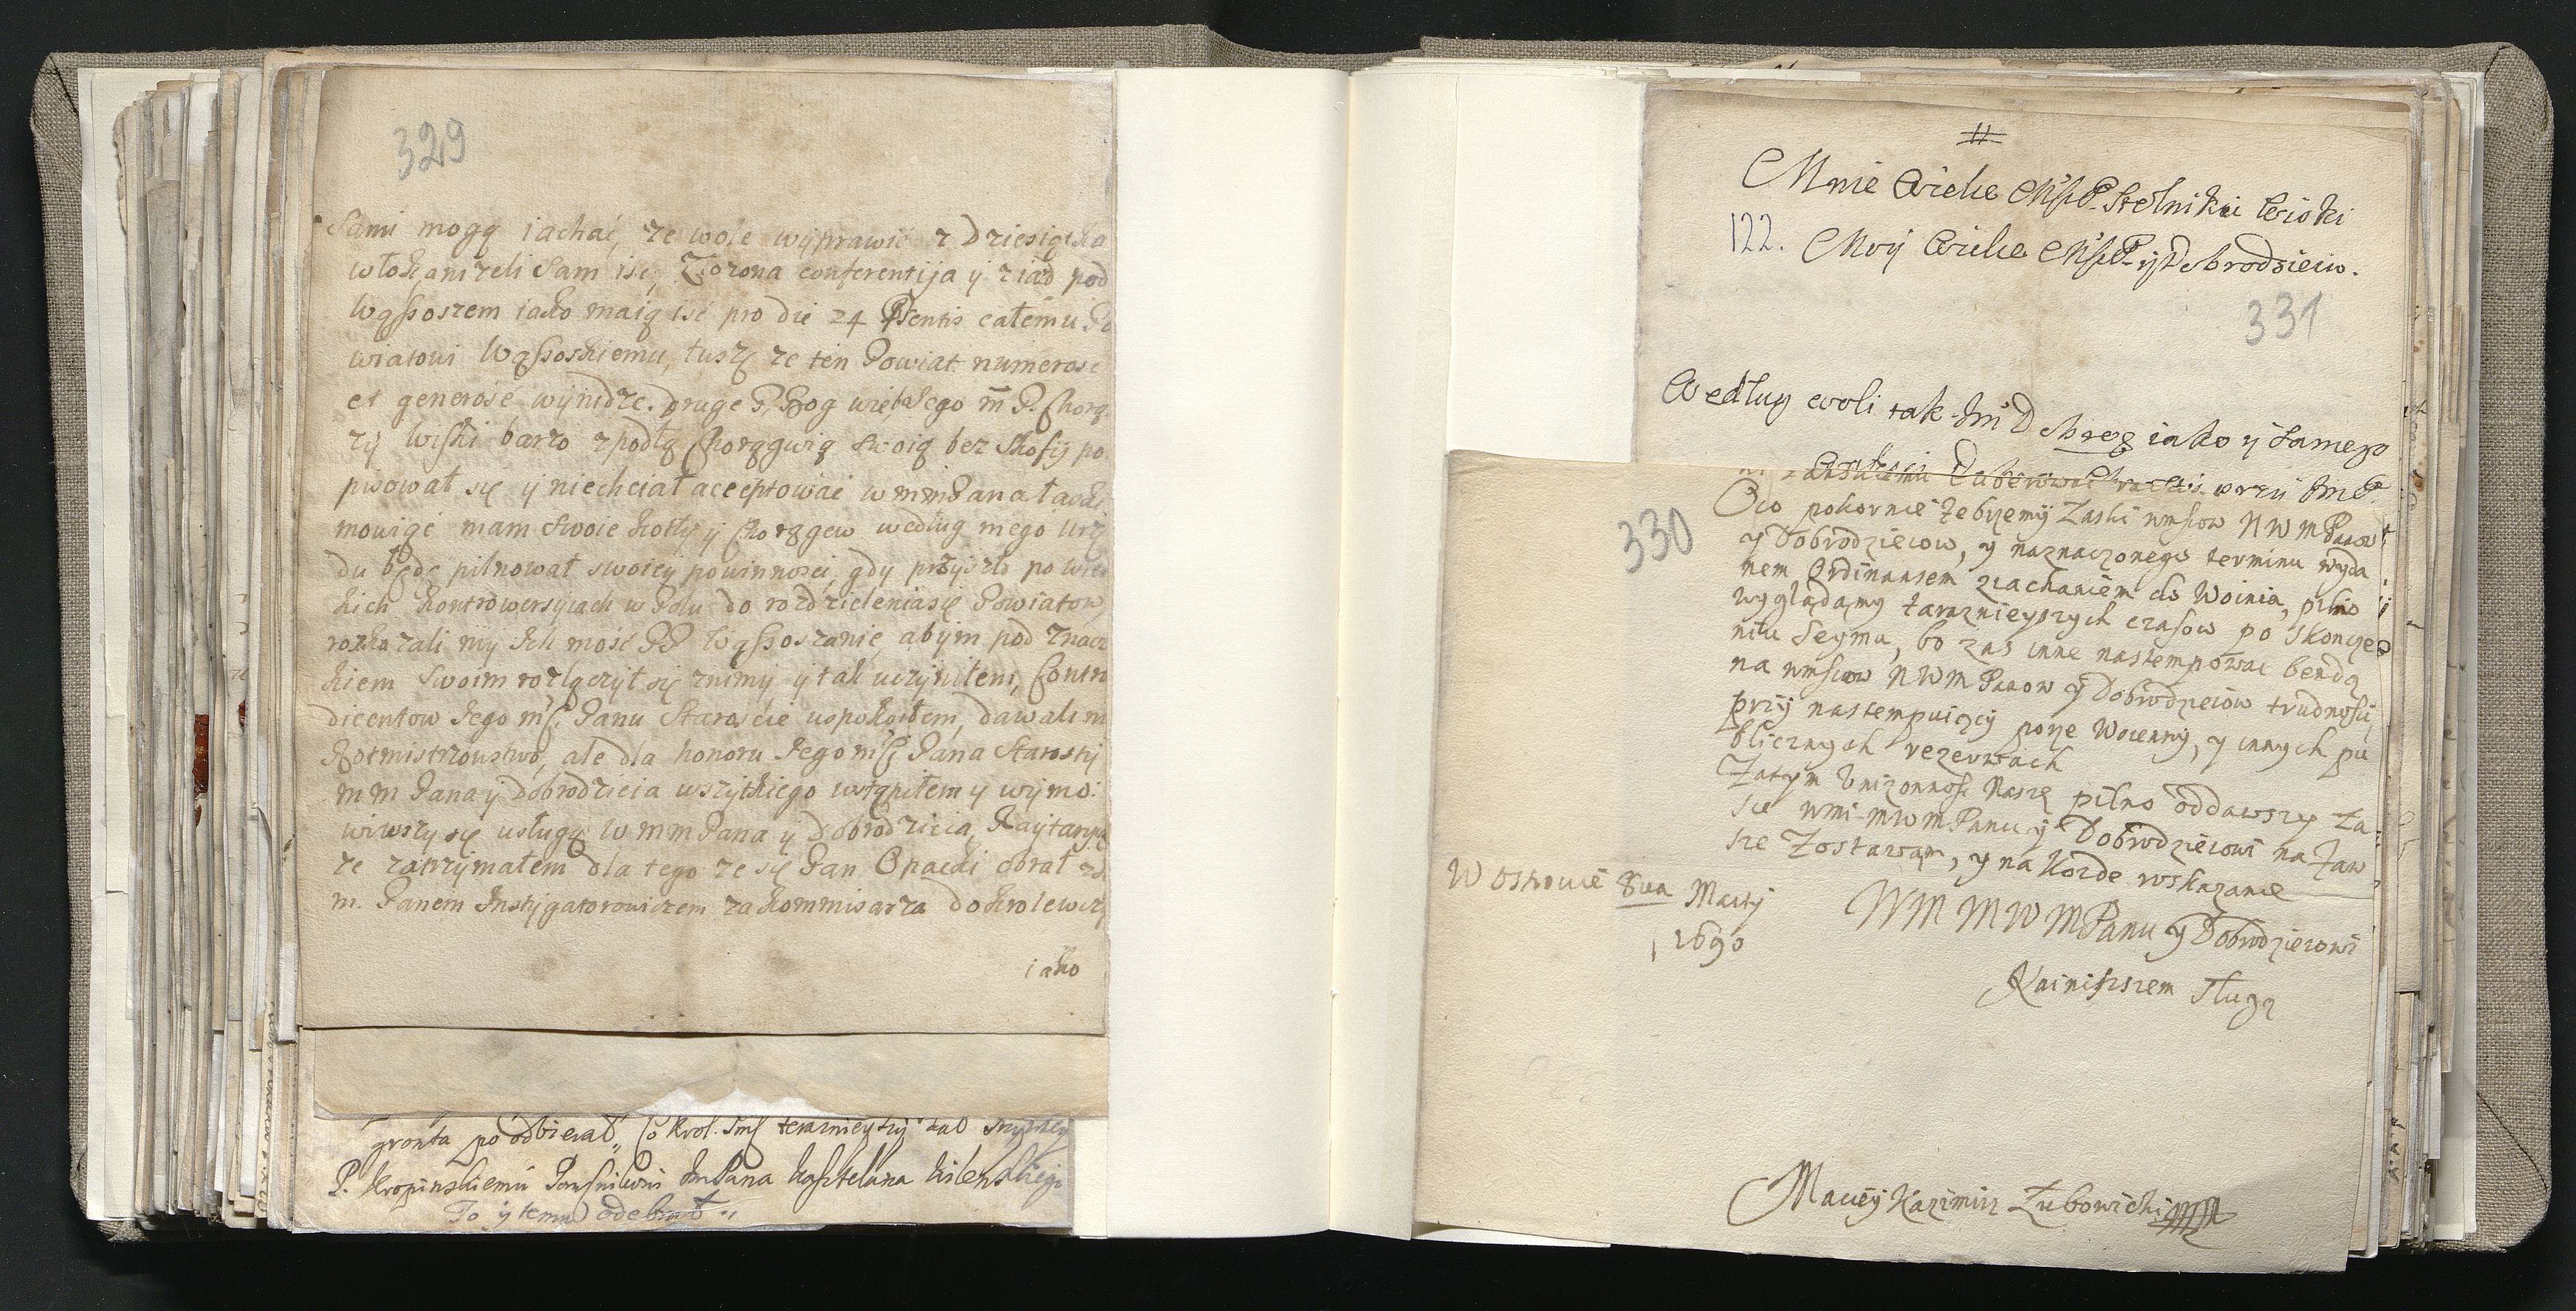 329
Sami mogą iachać, ze wole wyprawić z Dziesiątka
włok, anizeli sam iść, Złozona conferentija y ziazd pod
Wąssoszem iako maią iść pro die 24 Psentis całemu Po
wiatowi Wąssoskiemu, tuszę ze ten Powiat numerose
et generose wynidze. Druge P. Bog więtszego m P. Chorą
zy Wiski barzo zpodłą Chorągwią swoią bez
pisował się y niechciał acceptować w mm Pana łaski
mowiąc mam swoie kotły y Chorągew według mego urzę
du będę pilnował swoiey powinnosci, gdy przyszło po wiel
kich kontrowersyiach w Polu do rozdzieleniasię Powiatow
rozkazali my Ich mość PP Wąssoszanie, abym pod znacz
kiem Swoim rozłączył się znimy y tak uczyniłem, Contra
dicentow Jego mść Panu Staroscie uspokoiłem, dawali m
Rotmistrzowstwo, ale dla honoru Jego mść Pana Starosty
mm Pana y Dobrodzieia wszytkiego ustąpiłem y wymo:
wiwszy się usługą W mm Pana y Dobrodzieia, Raytaryą
ze zatrzymałem dla tego ze się Pan Opacki obrał z
m. Panem Instygatorowiczem za kommisarza do krolewicza
iako
gronta po odbierał, Co Krol. Jmść teraznieyszy dał
P. Kropinskiemu Jm Pana Kasztelana Wilenskiego
To y temu odebrał
Mnie Wielce Mśc P. Stolniku Wiski
122. Moy Wielce Mśc P. y Dobrodzieiu.
331
Według woli tak Jm Dobreg iako y samego
przy Jm P.
330
Oco pokornie zebrzemy Łaski wmsciow NWM Panow
y Dobrodzieiow, y naznaczonego terminu wyda
nem Ordinansem ziachaniem do Woinia, pilno
wyglądamy taraznieyszych czasow po skoncze
niu Seymu, bo zas inne nastempowac bendą
na wmsciow NWM Panow y Dobrodzieiow trudnosci,
przy nastempuiący porze Woienny, y innych pu
blicznych rezerwach
Zatym Unizonnosc Naszę pilno oddawszy Za
sie wmi MWM Panu y Dobrodzieiowi na Zaw
sze Zostawam, y na kozde wskazanie
W Ostrowie 8va Martij
1690
WM MWM Panu y Dobrodzieiowi
Nainiszszem Sługą
Maciey Kazimirz Zubowicki